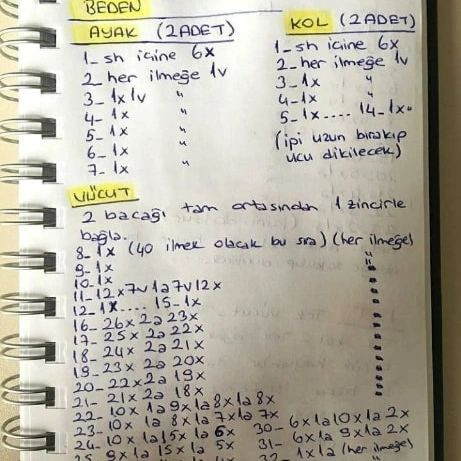 BEDEN
AYAK (2 ADET)
1_ sh içine 6x
2_ her ilmeğe 1v
3_ 1x 1v "
4_ 1x "
5_ 1x "
6_ 1x "
7_ 1x "
KOL (2 ADET)
1_ sh içine 6x
2_ her ilmeğe 1v
3_ 1x "
4_ 1x "
5_ 1x.... 14_1x"
(ipi uzun bırakıp
ucu dikilecek)
VÜCUT
2 bacağı tam ortasından 1 zincirle
bağla.
8_ 1x (40 ilmek olacak bu sıra) (her ilmeğe)
9_ 1x "
10_ 1x "
11_ 12x 7v 1a 7v 12x "
12_ 1x.... 15_1x "
16_ 26x 2a 23x "
17_ 25x 2a 22x "
18_ 24x 2a 21x "
19_ 23x 2a 20x "
20_ 22x 2a 19x "
21_ 21x 2a 18x "
22_ 10x 1a 9x 1a 8x 1a 8x
23_ 10x 1a 8x 1a 7x 1a 7x
24_ 10x 1a 15x 1a 6x
25_ 9x 1a 15x 1a 5x
30_ 6x 1a 10x 1a 2x
31_ 6x 1a 9x 1a 2x
32_ 1x 1a (her ilmeğe)